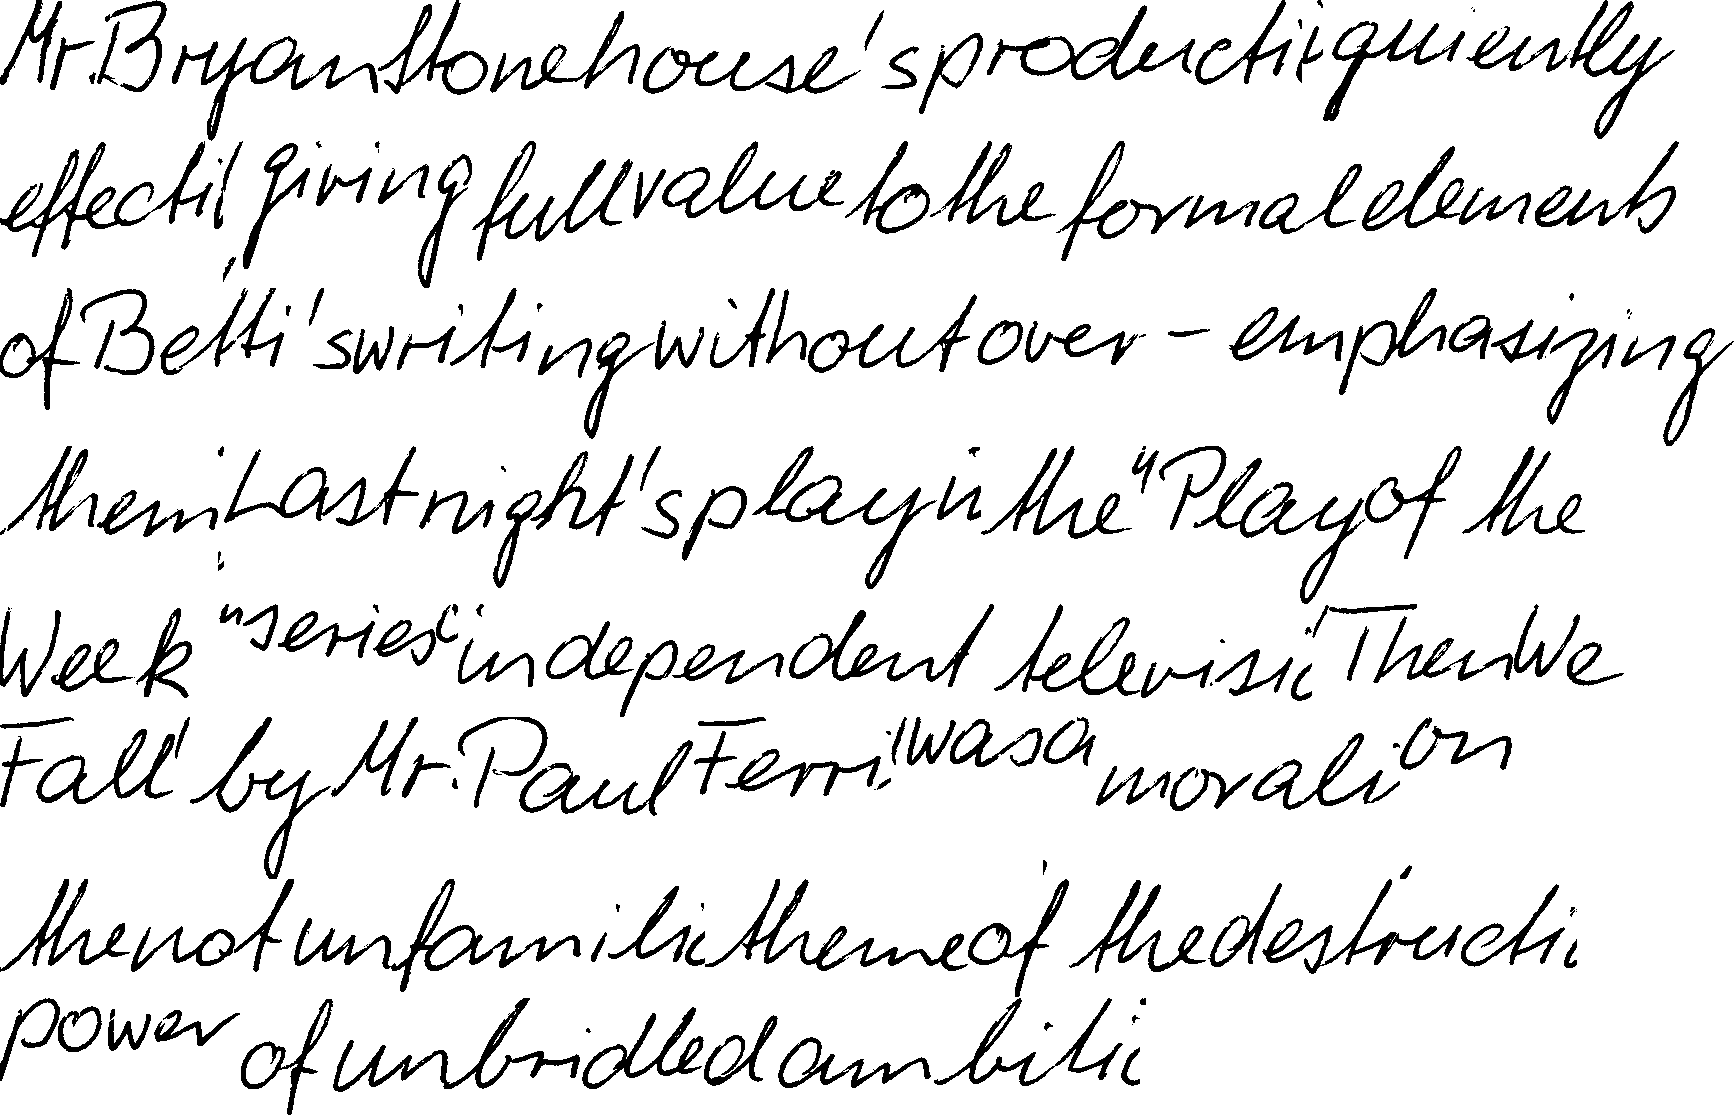 Mr. Bryan Stonehouse's producti quiently
effecti giving full value to the formal elements
of Betti's writing without over - emphasizing
them. Last night's play in the "Play of the
Week" series independent televisi Then We
Fall by Mr. Paul Ferri was a morali on
the not unfamili theme of the destructi
power of unbridled ambiti